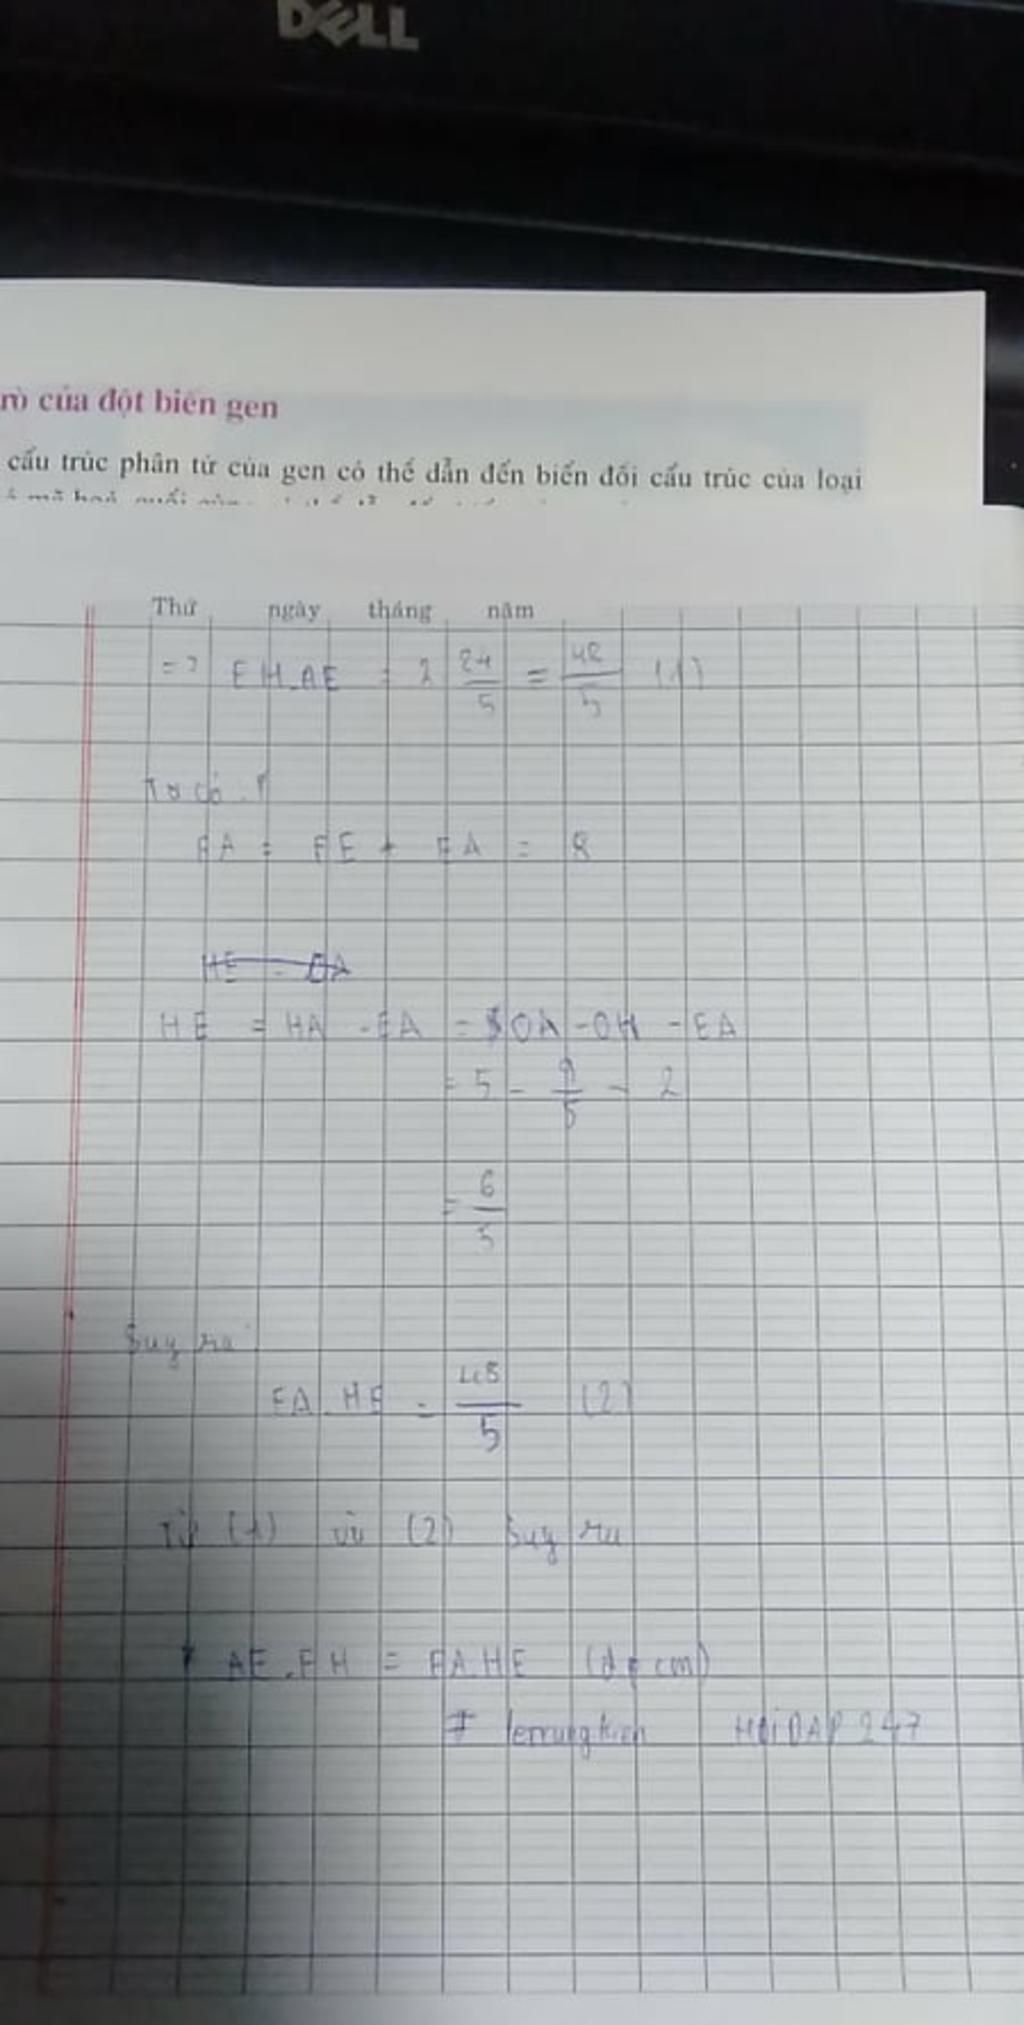 DELL
rò của đột biến gen
cấu trúc phân tử của gen có thể dẫn đến biến đổi cấu trúc của loại
Thứ ngày tháng năm
=> FH.AE = 2 24/5 = 48/5 (1)
Ta có :
FA = FE + EA = 8
HE = HA - EA = OA - OH - EA
= 5 - 9/5 - 2
= 6/5
Suy ra
FA.HE = 48/5 (2)
Từ (1) và (2) suy ra
AE.FH = FA.HE (đpcm)
# HỎIĐAP 247